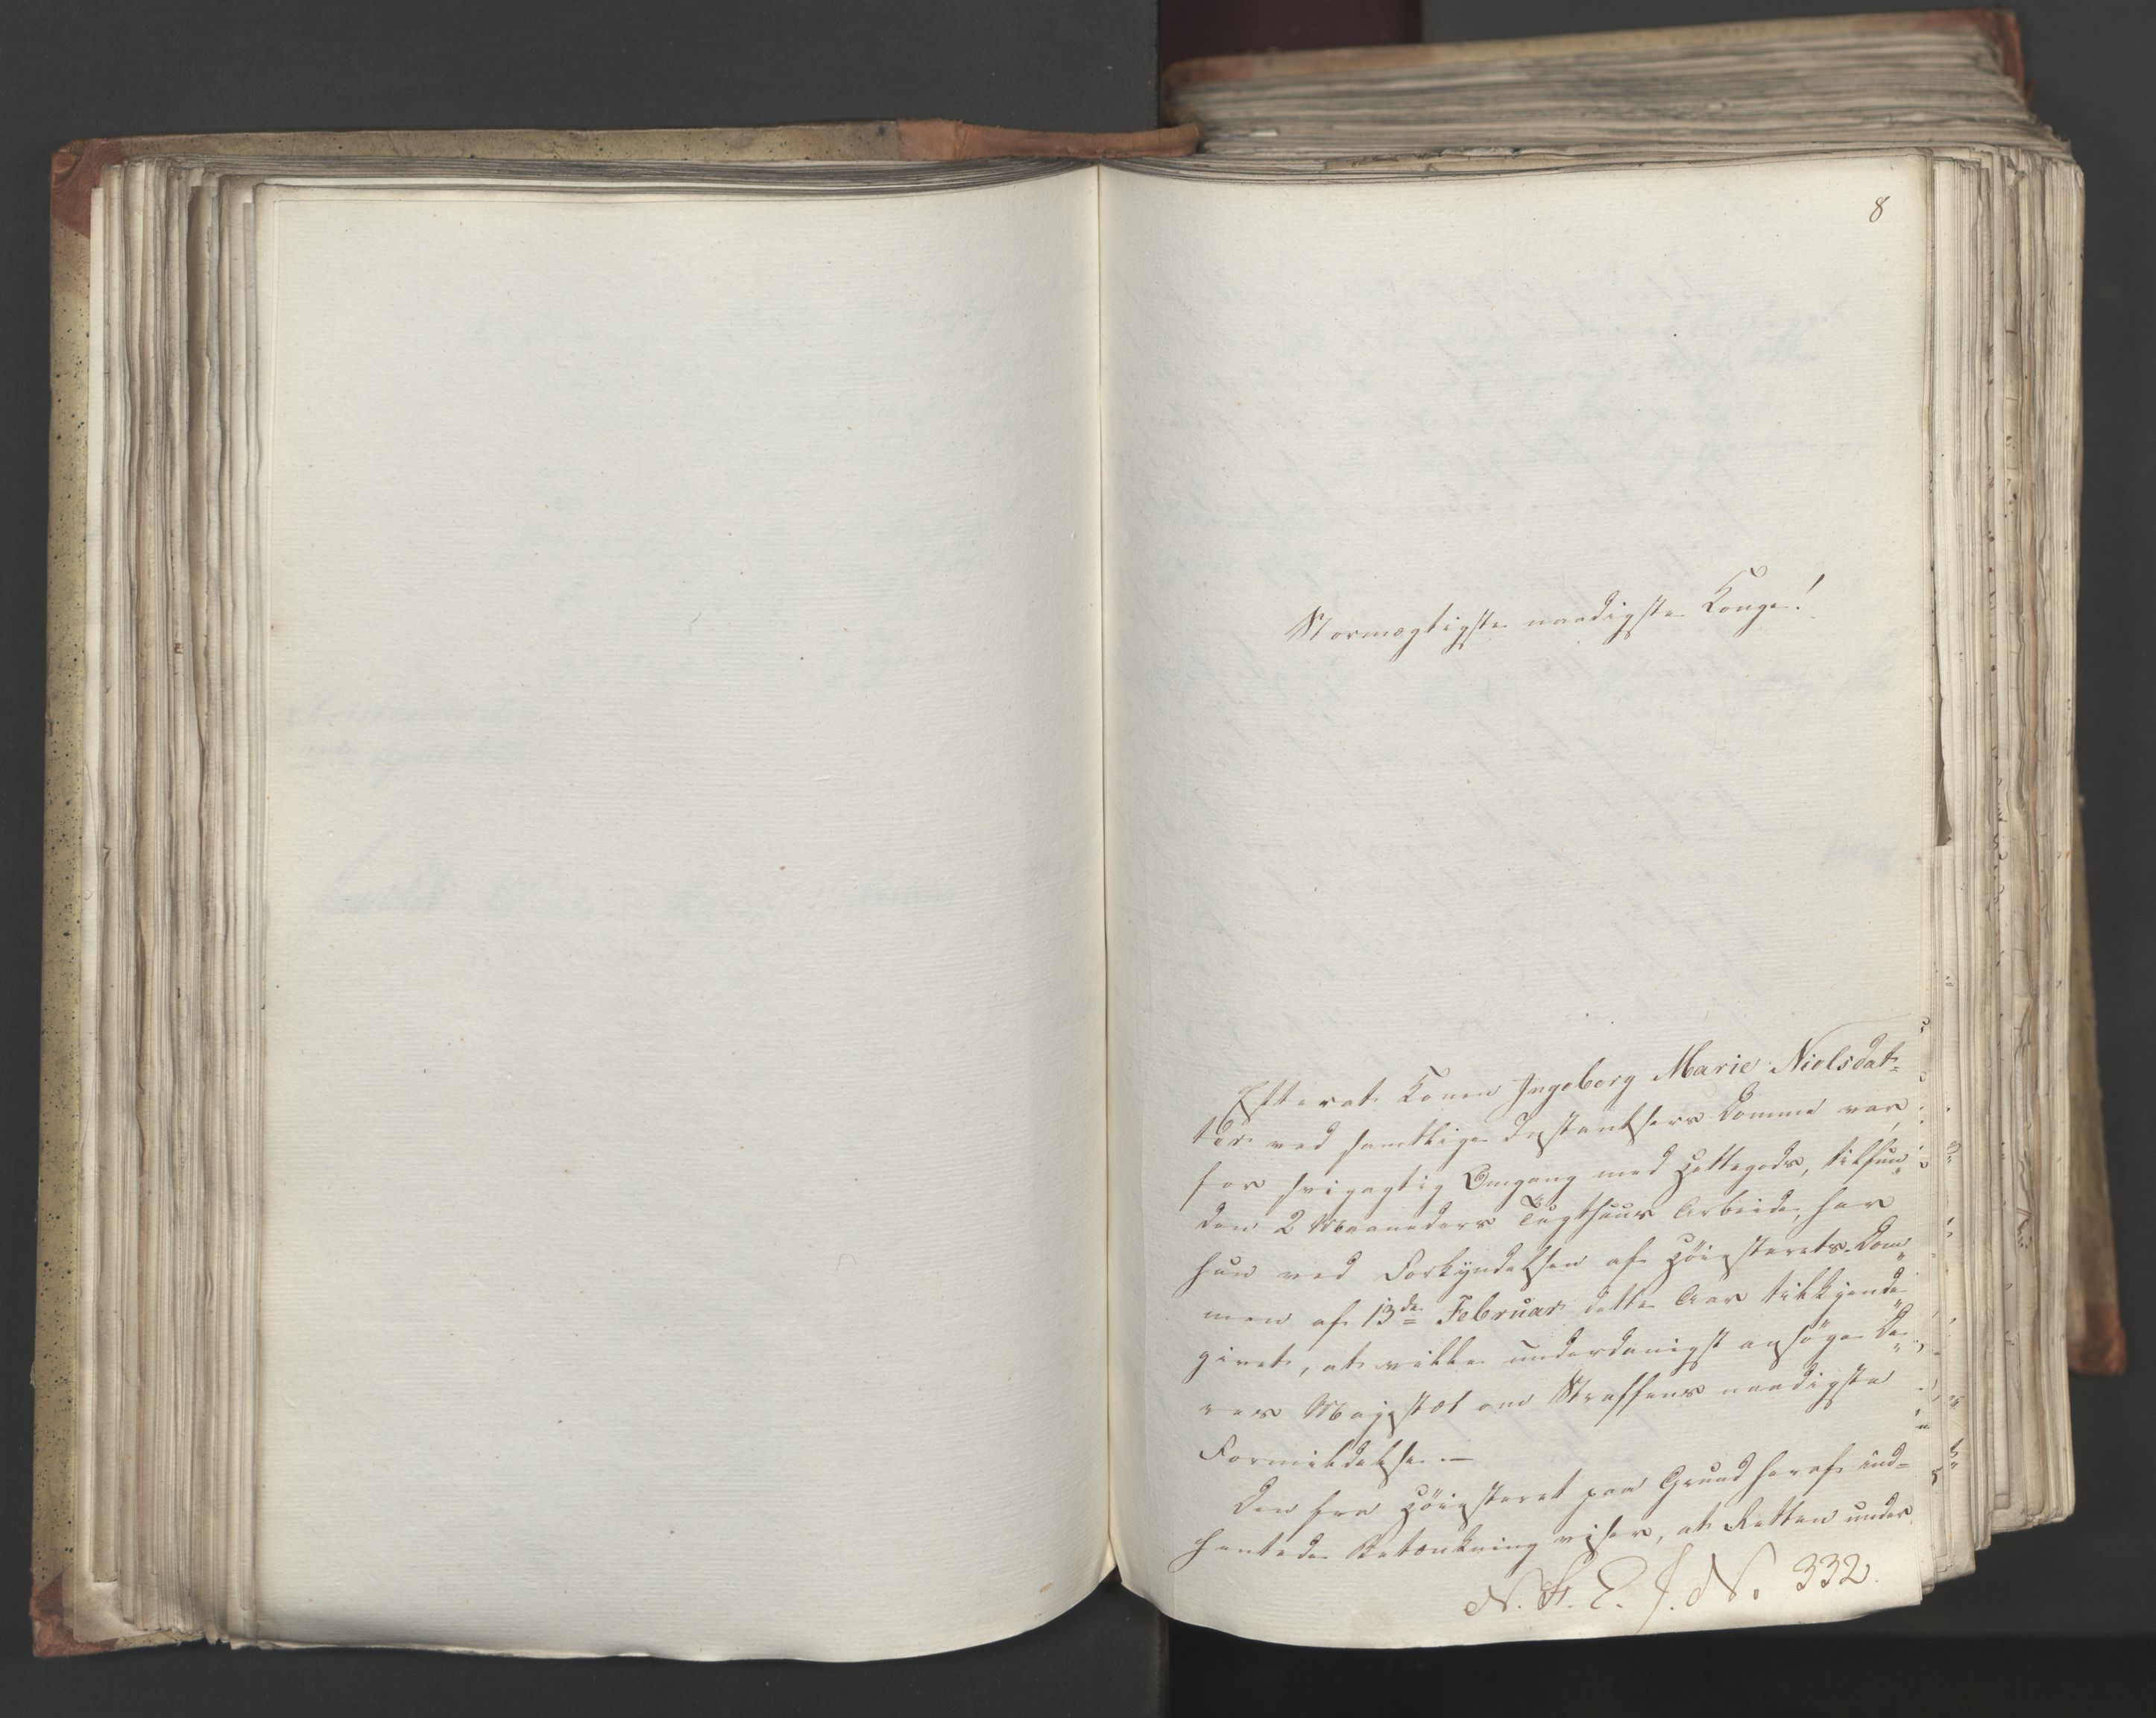 8
Stormægtigste naadigste Konge!
Efterat Konen Ingeborg Marie Nielsdat=
ter ved samtlige Instantsers Domme var,
for svigagtig Omgang med Hittegods, tilfun„
den 2 Maaneders Tugthuus Arbeide, har
hun ved Forkyndelsen af Høiesterets-Dom„
men af 13de Februar dette Aar tilkjende„
givet, at ville underdanigst ansøge De„
res Majestæt om Straffens naadigste
Formildelse. —
Den fra Høiesteret paa Grund heraf ind=
hentede Betænkning viser, at Retten under
N. S. E. J. No 332.